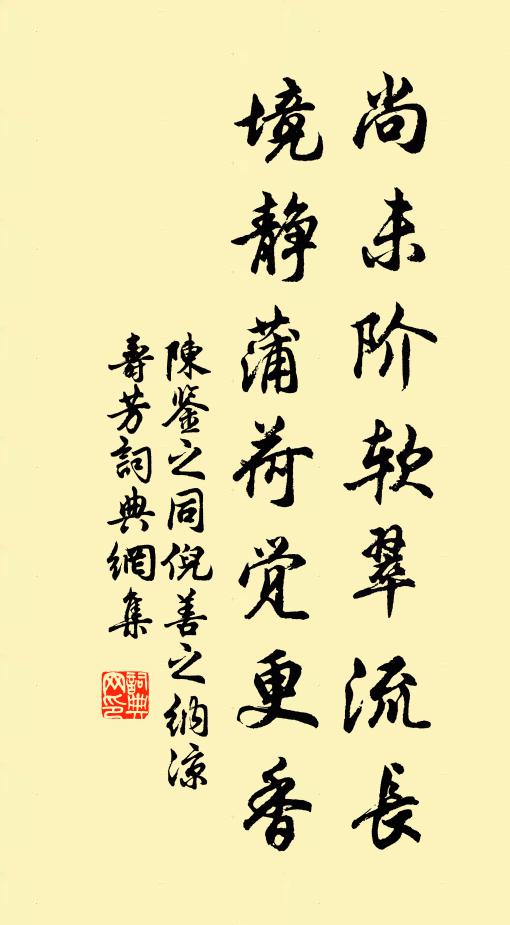 尚未阶软翠流長
境静蒲荷觉更香
陳鉴之同倪善之纳涼
壽芳詞典網集
詞典网印